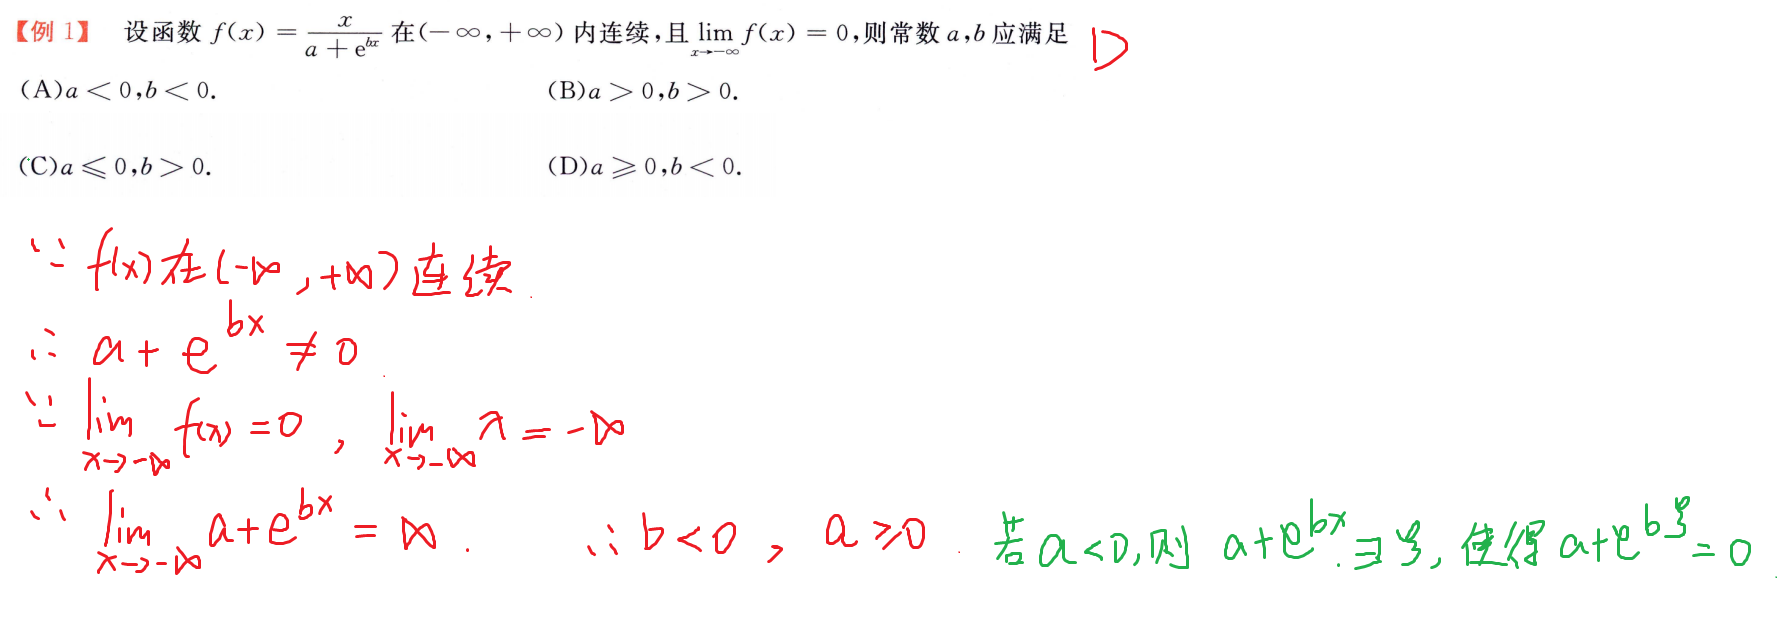 【例 1】 设函数 f(x) = x/(a + e^{bx}) 在(-∞,+∞) 内连续,且 lim_{x→-∞} f(x) = 0,则常数 a,b 应满足 D
(A)a < 0,b < 0. (B)a > 0,b > 0.
(C)a ⩽ 0,b > 0. (D)a ⩾ 0,b < 0.
∵ f(x)在(-∞,+∞)连续.
∴ a + e^{bx} ≠ 0
∵ lim_{x→-∞} f(x) = 0 , lim_{x→-∞} x = -∞
∴ lim_{x→-∞} a+e^{bx} = ∞. ∴ b<0 , a⩾0. 若a<0,则 a+e^{bx}.∃ξ,使得a+e^{bξ}=0